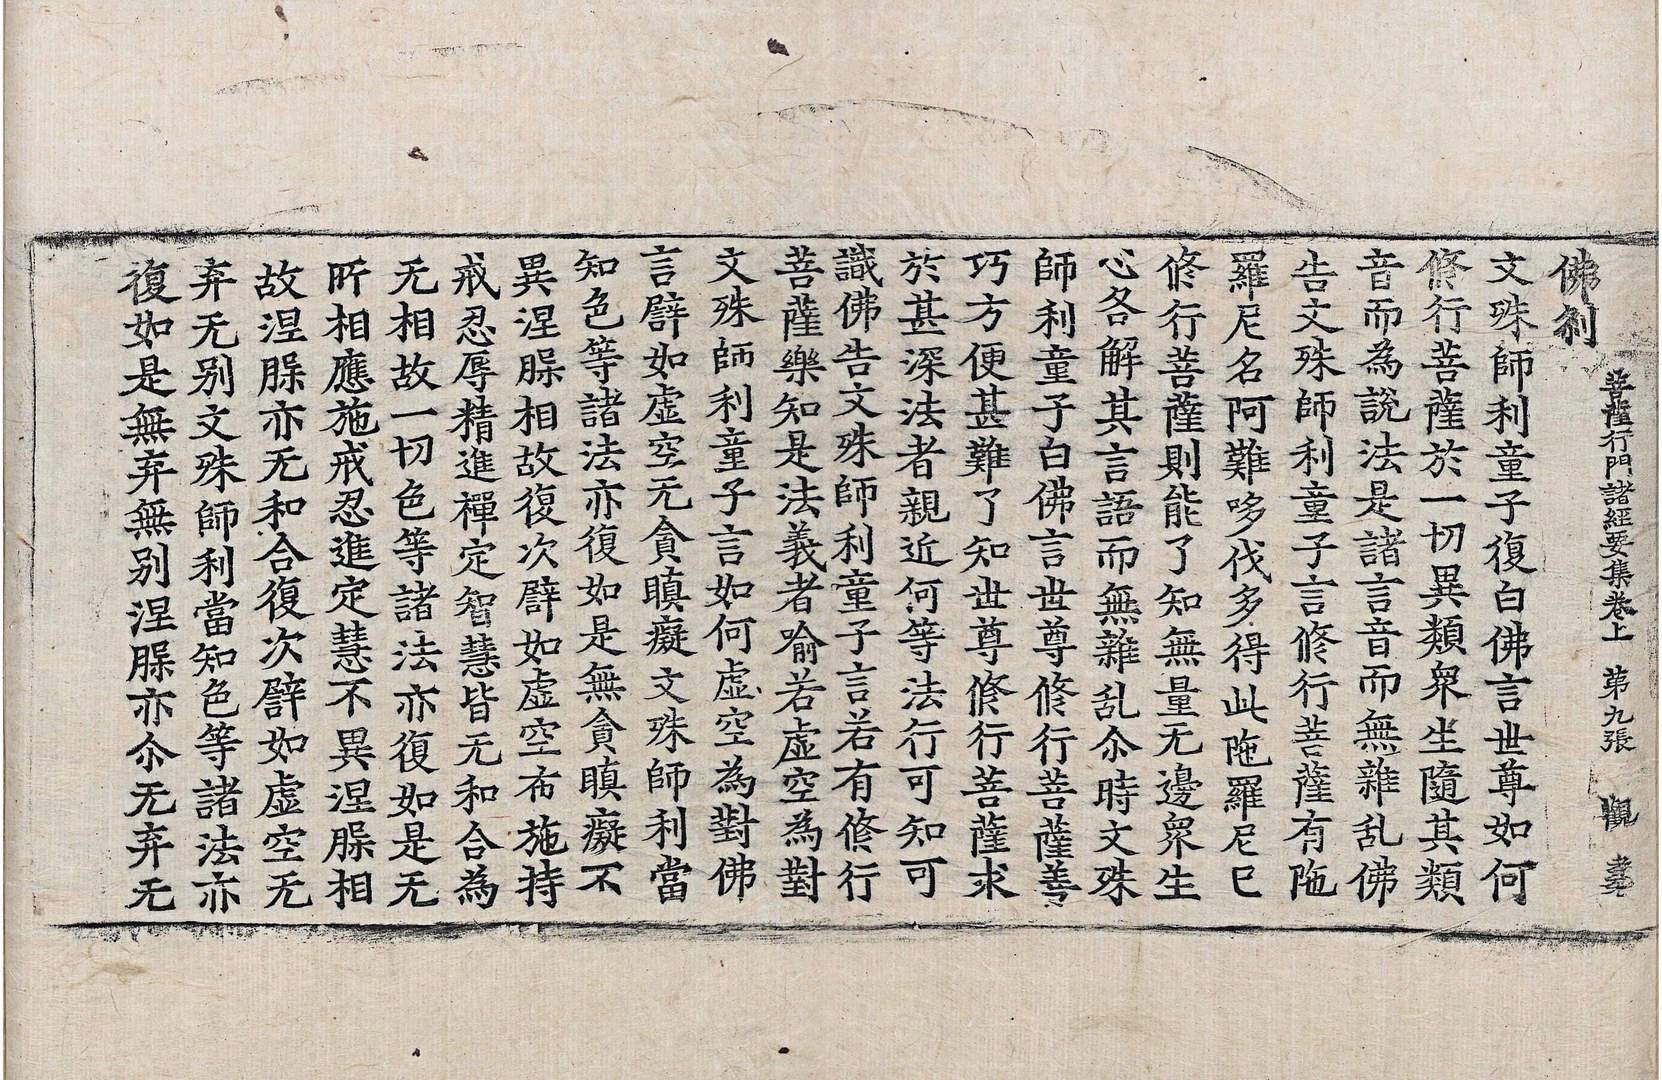 菩薩行門諸經要集卷上 第九張 觀
佛刹
文殊師利童子復白佛言世尊如何
修行菩薩於一切異類眾生隨其類
音而為說法是諸言音而無雜乱佛
告文殊師利童子言修行菩薩有陁
羅尼名阿難哆伐多得此陁羅尼已
修行菩薩則能了知無量无邊眾生
心各解其言語而無雜乱尒時文殊
師利童子白佛言世尊修行菩薩善
巧方便甚難了知世尊修行菩薩求
於甚深法者親近何等法行可知可
識佛告文殊師利童子言若有修行
菩薩樂知是法義者喻若虛空為對
文殊師利童子言如何虛空為對佛
言譬如虛空无貪瞋癡文殊師利當
知色等諸法亦復如是無貪瞋癡不
異涅槃相故復次譬如虛空布施持
戒忍辱精進禪定智慧皆无和合為
无相故一切色等諸法亦復如是无
所相應施戒忍進定慧不異涅槃相
故涅槃亦无和合復次譬如虛空无
弃无别文殊師利當知色等諸法亦
復如是無弃無别涅槃亦尒无弃无